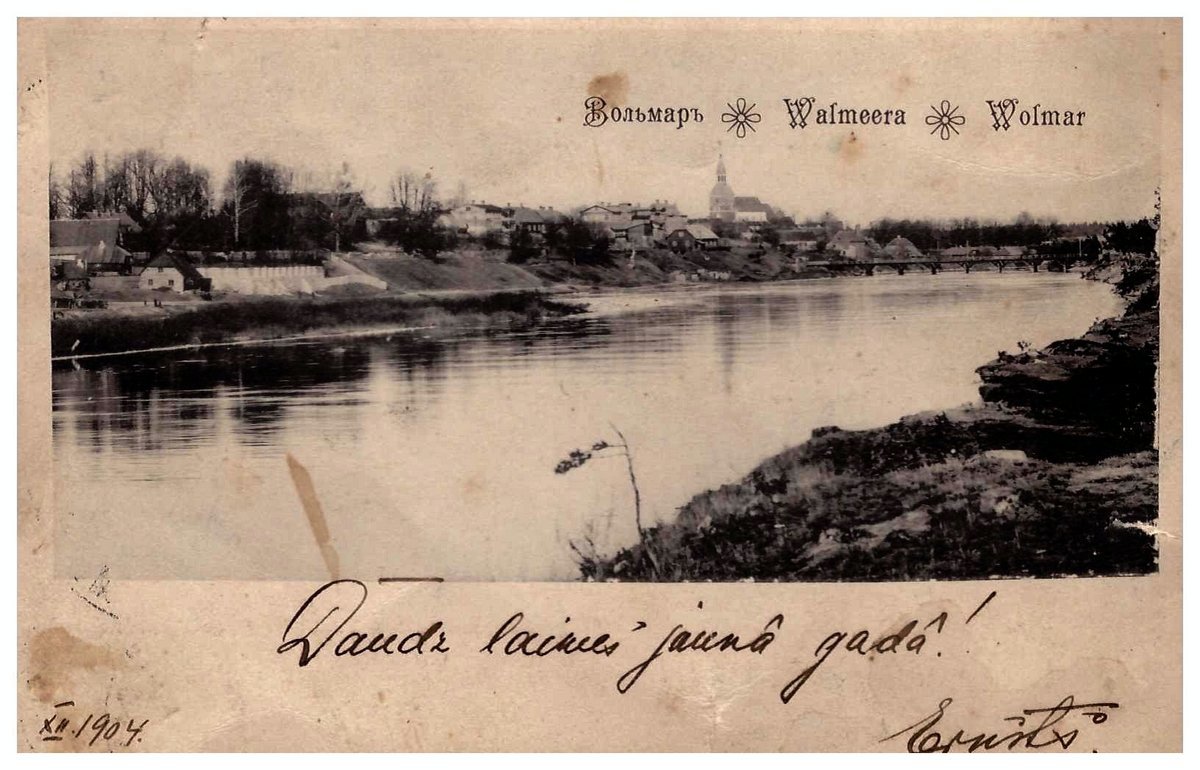 Вольмаръ Walmeera Wolmar
Daudz laimes jaunâ gadâ!
XII. 1904.
Ernsts.